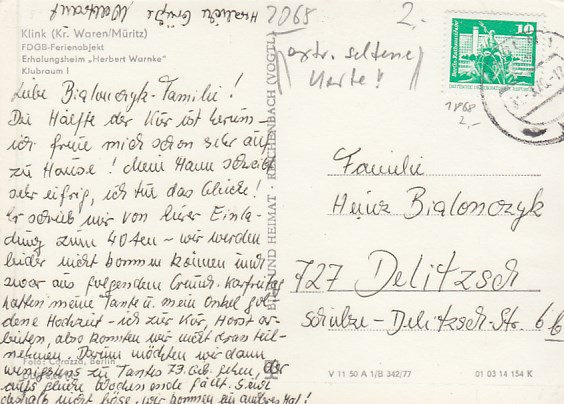 Herzliche Grüße Waltraut
Klink (Kr. Waren/Müritz)
FDGB-Ferienobjekt
Erholungsheim „Herbert Warnke"
Klubraum I
Liebe Bialonczyk-Familie!
Die Hälfte der Kur ist herum –
ich freue mich schon sehr auf
zu Hause! Mein Mann schreibt
sehr eifrig, ich tu das Gleiche!
Er schrieb mir von Eurer Einla-
dung zum 40sten – wir werden
leider nicht kommen können und
zwar aus folgendem Grund. Karfreitag
hatten meine Tante u. mein Onkel gol
dene Hochzeit – ich zur Kur, Horst ar-
beiten, also konnten wir nicht dran teil-
nehmen. Darum möchten wir dann
wenigstens zu Tantes 73. Geb. gehen, der
aufs gleiche Wochenende fällt. Seid
deshalb nicht böse, wir kommen ein anderes Mal!
Foto: Carazzo, Berlin
BILD UND HEIMAT · REICHENBACH (VOGTL)
2068
2.-
extr. seltene
Karte!
10
1868
2,-
Familie
Heinz Bialonczyk
727 Delitzsch
Schulze-Delitzsch-Str. 66
V 11 50 A 1/B 342/77
01 03 14 154 K